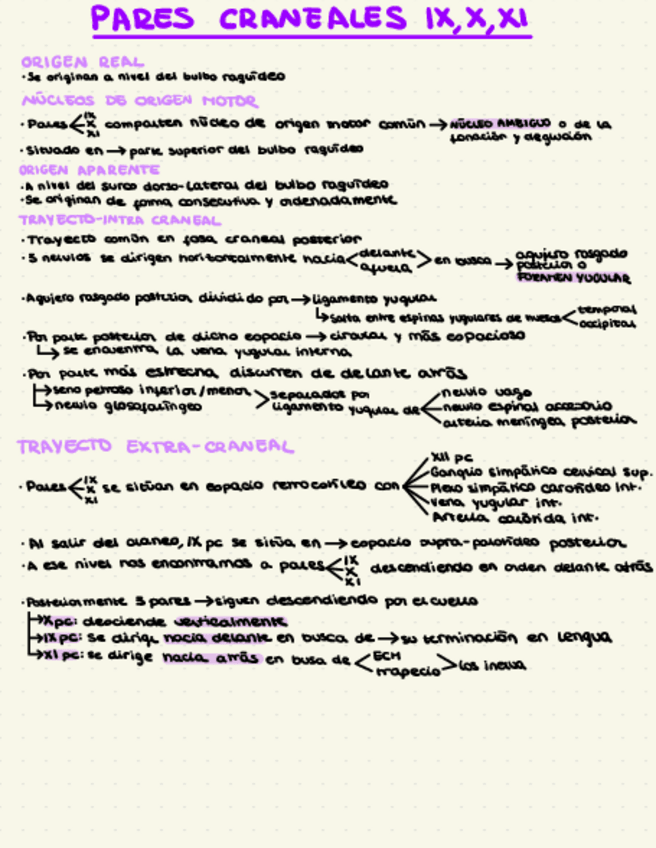 PARES CRANEALES IX, X, XI
ORIGEN REAL
· Se originan a nivel del bulbo raquídeo
NÚCLEOS DE ORIGEN MOTOR
· Pares IX X XI comparten núcleo de origen motor común → NÚCLEO AMBIGUO o de la
fonación y deglución
· Situado en → parte superior del bulbo raquídeo
ORIGEN APARENTE
· A nivel del surco dorso-lateral del bulbo raquídeo
· Se originan de forma consecutiva y ordenadamente
TRAYECTO-INTRA CRANEAL
· Trayecto común en fosa craneal posterior
· 3 nervios se dirigen horizontalmente hacia delante afuera en busca → agujero rasgado
posterior o
FORAMEN YUGULAR
· Agujero rasgado posterior dividido por → ligamento yugular
↳ Salta entre espinas yugulares de huesos temporal occipital
· Por parte posterior de dicho espacio → circular y más espacioso
↳ se encuentra la vena yugular interna
· Por parte más estrecha discurren de delante atrás
→ seno petroso inferior/menor separados por nervio vago
→ nervio glosofaríngeo ligamento yugular de nervio espinal accesorio
arteria meníngea posterior
TRAYECTO EXTRA-CRANEAL
XII pc
Ganglio simpático cervical sup.
· Pares IX X XI se sitúan en espacio retroestíleo con Plexo simpático carotídeo int.
Vena yugular int.
Arteria carótida int.
· Al salir del cráneo, IX pc se sitúa en → espacio supra-parotídeo posterior
· A ese nivel nos encontramos a pares IX X XI descendiendo en orden delante atrás
· Posteriormente 3 pares → siguen descendiendo por el cuello
→ X pc: desciende verticalmente
→ IX pc: se dirige hacia delante en busca de → su terminación en lengua
→ XI pc: se dirige hacia atrás en busa de ECM trapecio los inerva